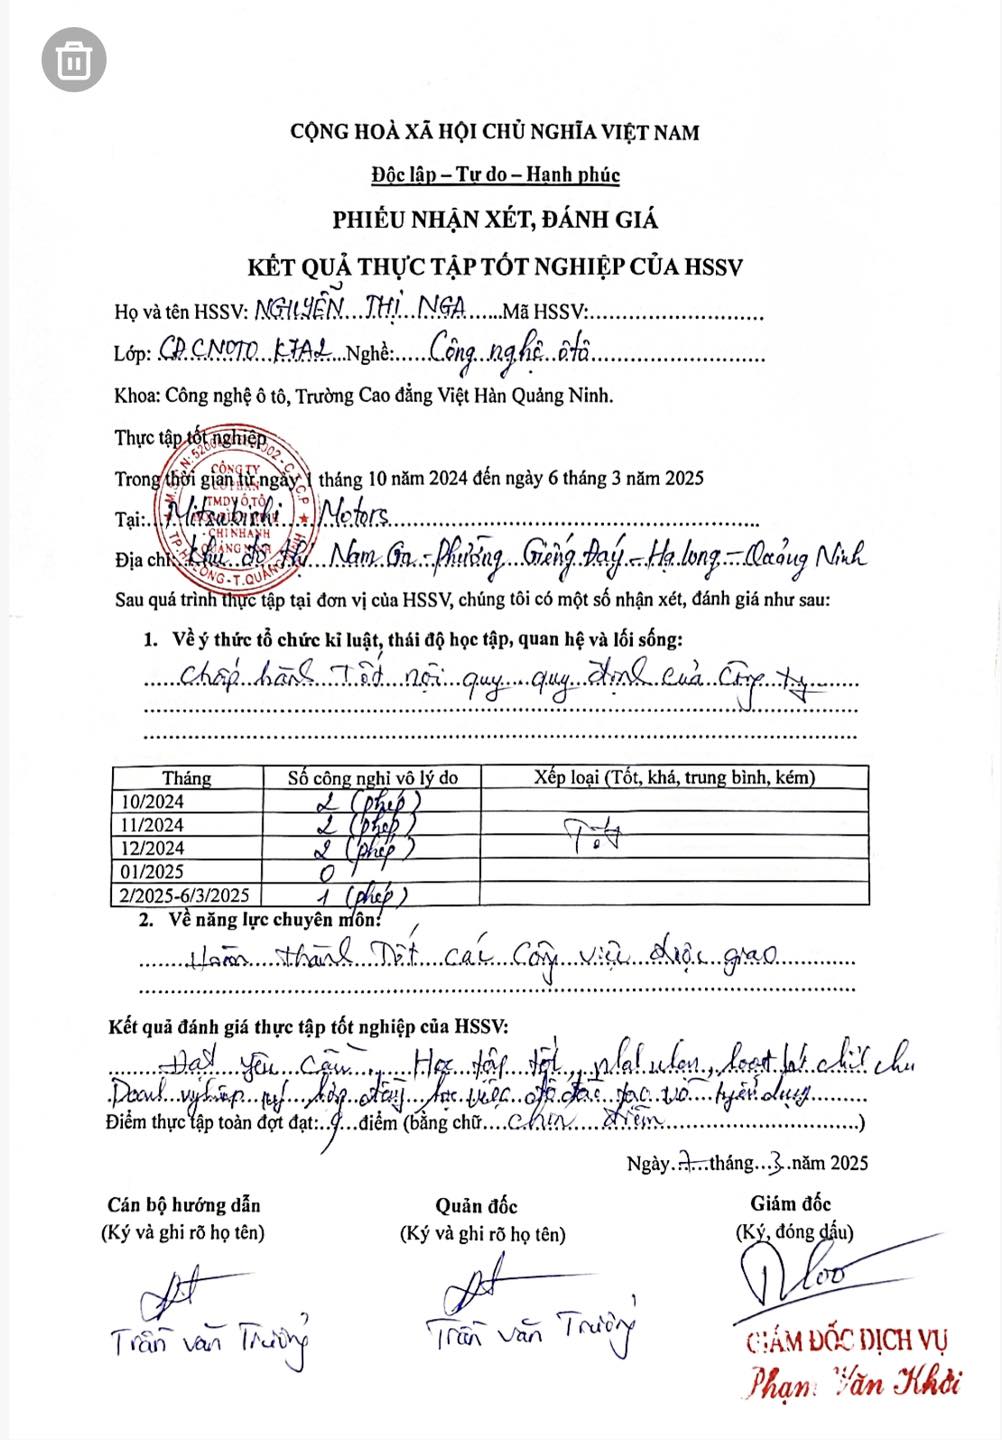 CỘNG HOÀ XÃ HỘI CHỦ NGHĨA VIỆT NAM
Độc lập – Tự do – Hạnh phúc
PHIẾU NHẬN XÉT, ĐÁNH GIÁ
KẾT QUẢ THỰC TẬP TỐT NGHIỆP CỦA HSSV
Họ và tên HSSV: NGUYỄN THỊ NGA Mã HSSV:
Lớp: CĐ.CNOTO K7A2 Nghề: Công nghệ ôtô
Khoa: Công nghệ ô tô, Trường Cao đẳng Việt Hàn Quảng Ninh.
Thực tập tốt nghiệp
Trong thời gian từ ngày 1 tháng 10 năm 2024 đến ngày 6 tháng 3 năm 2025
CÔNG TY
CỔ PHẦN
TMDV Ô TÔ
Tại: Mitsubishi Motors
CHI NHÁNH
QUẢNG NINH
Địa chỉ: Khu đô thị Nam Ga - Phường Giếng Đáy - Hạ long - Quảng Ninh
Sau quá trình thực tập tại đơn vị của HSSV, chúng tôi có một số nhận xét, đánh giá như sau:
1. Về ý thức tổ chức kỉ luật, thái độ học tập, quan hệ và lối sống:
Chấp hành Tốt nội quy quy định của Công ty
Tháng Số công nghỉ vô lý do Xếp loại (Tốt, khá, trung bình, kém)
10/2024 2 (phép)
11/2024 2 (phép) Tốt
12/2024 2 (phép)
01/2025 0
2/2025-6/3/2025 1 (phép)
2. Về năng lực chuyên môn:
Hoàn thành Tốt các công việc được giao
Kết quả đánh giá thực tập tốt nghiệp của HSSV:
Đạt yêu cầu, Học tập tốt, nhanh nhẹn, hoạt bát
Doanh nghiệp học việc tuyển dụng
Điểm thực tập toàn đợt đạt: 9 điểm (bằng chữ chín điểm)
Ngày 7 tháng 3 năm 2025
Cán bộ hướng dẫn Quản đốc Giám đốc
(Ký và ghi rõ họ tên) (Ký và ghi rõ họ tên) (Ký, đóng dấu)
Trần Văn Trường Trần Văn Trường
GIÁM ĐỐC DỊCH VỤ
Phạm Văn Khởi